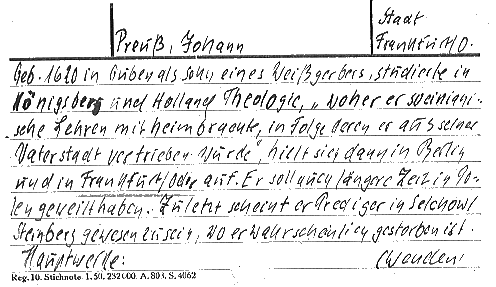 Stadt
Preuß, Johann Frankfurt/O.
Geb. 1620 in Guben als Sohn eines Weißgerbers, studierte in
Königsberg und Holland Theologie, „woher er soziniani-
sche Lehren mit heimbrachte, in Folge deren er aus seiner
Vaterstadt vertrieben wurde", hielt sich dann in Berlin
und in Frankfurt/Oder auf. Er soll auch längere Zeit in Po-
len geweilt haben. Zuletzt scheint er Prediger in Selchow/
Steinberg gewesen zu sein, wo er wahrscheinlich gestorben ist.
Hauptwerke: (wenden)
Reg. 10. Stichnote. 1. 50. 232000. A. 803. S. 4062